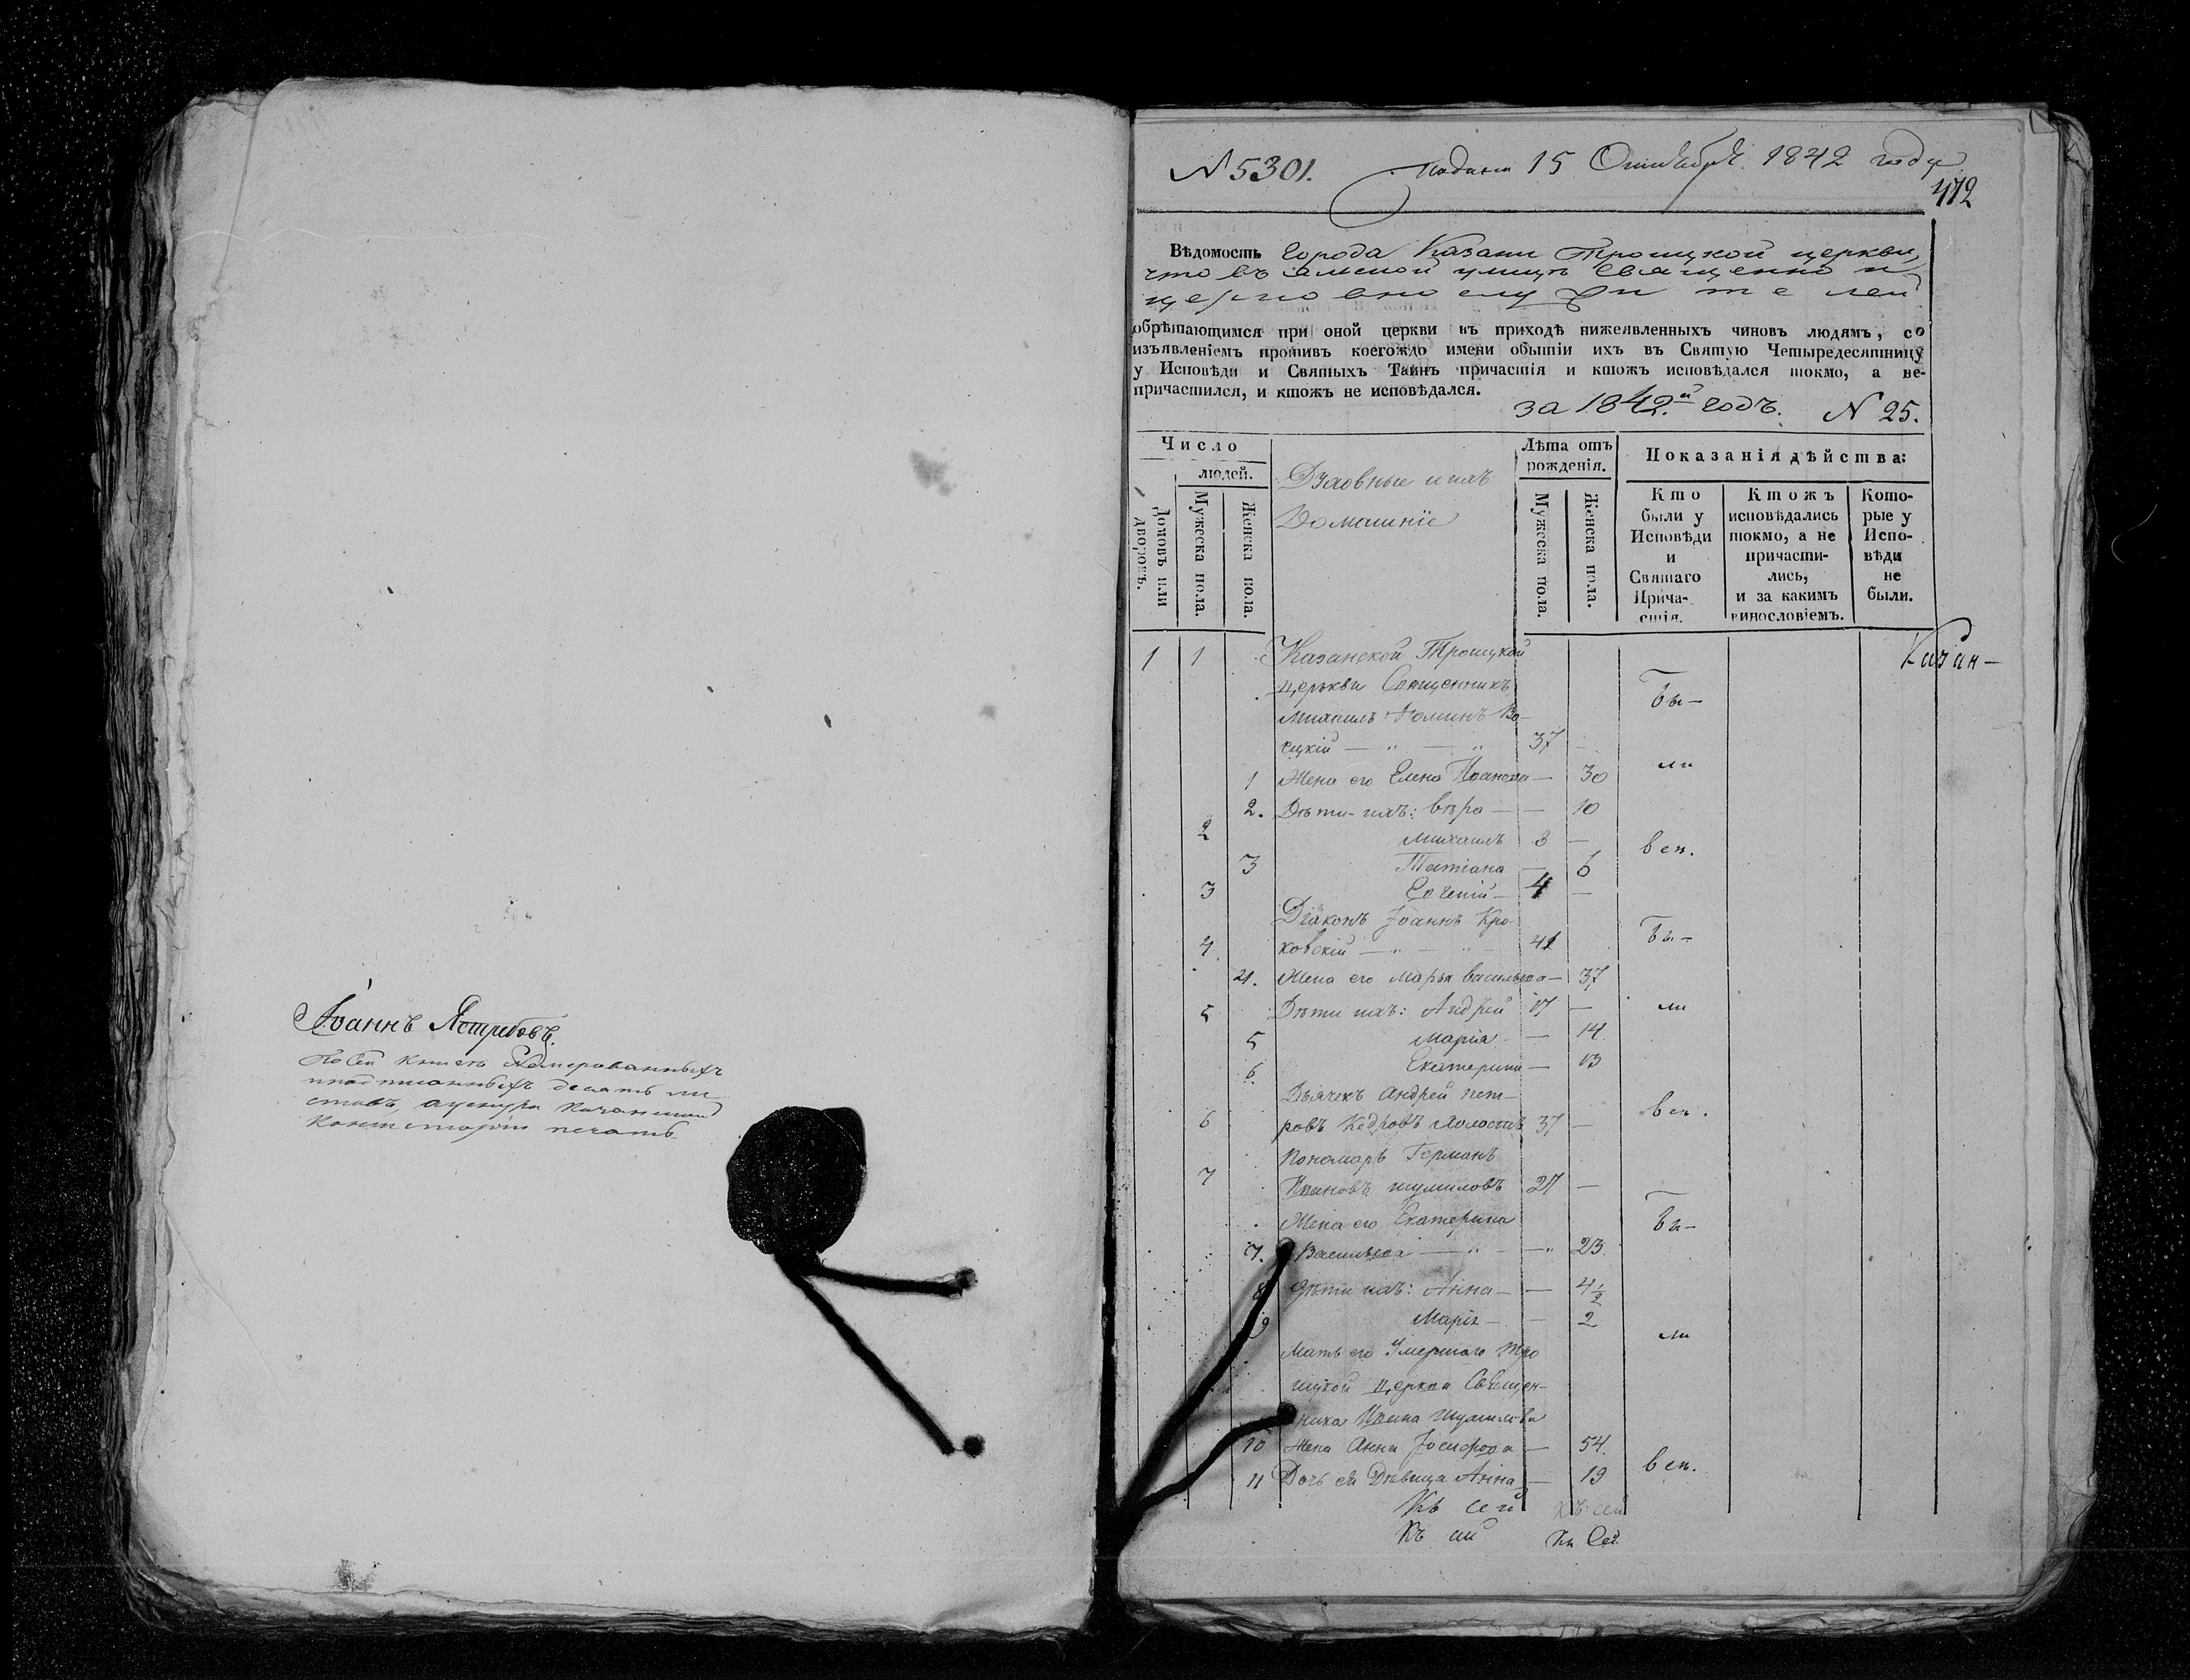 Іоаннъ Ястребовъ.
По сей книгѣ номерованныхъ
десять ли
стовъ, Казанской
Консисторіи печать
№ 5301. Подана 15 Октября 1842 года
412
Вѣдомость Города Казани Троицкой церкви,
что въ Ямской улицѣ Священно и
церковно служителей
обрѣтающимся при оной церкви въ приходѣ нижеявленныхъ чиновъ людямъ, со
изъявленіемъ противъ коегождо имени обытіи ихъ въ Святую Четыредесятницу
у Исповѣди и Святыхъ Таинъ причастія и ктожъ исповѣдался токмо, а не-
причастился, и ктожъ не исповѣдался.
за 1842.й годъ. № 25.
Число
людей.
Домовъ или дворовъ.
Мужеска пола.
Женска пола.
Духовные и ихъ
Домашніе
Лѣта отъ
рожденія.
Мужеска пола.
Женска пола.
Показанія дѣйства:
Кто
были у
Исповѣди
и
Святаго
Прича-
стія.
Ктожъ
исповѣдались
токмо, а не
причасти-
лись,
и за какимъ
винословіемъ.
Кото-
рые у
Испо-
вѣди
не
были.
1 1 Казанской Троицкой Казан-
церкви Священникъ Бы-
Михаилъ Фоминъ Во-
ецкій — " — " 37 -
1 Жена его Елена Иванова — 30 ли
2. Дѣти ихъ: Вѣра — — 10
2 Михаилъ 8 — всп.
3 Татіана — 6
3 Евгеній — 4 —
Діаконъ Іоаннъ Кро-
4. ковскій — " — " — 41 Бы-
4. Жена его Марья Васильева — 37
5 Дѣти ихъ: Андрей 17 — ли
5 Марія — — 14
6. Екатерина — 13
Дьячекъ Андрей Пет-
6 ровъ Кедровъ холостъ 37 — всп.
Пономарь Германъ
7 Ивановъ Шумиловъ 27 —
Жена его Екатерина Бы-
7. Васильева — " — — " 23.
8 Дѣти ихъ: Анна — — 4 1/2
9 Марія — — 2
Мать его Умершаго Тро ли
ицкой Церкви Священ-
ника Ивана Шумилова
10 Жена Анна Іосифова — 54.
11 Дочь ея Дѣвица Анна — 19 всп.
Къ сей къ сей
Къ сей Къ Сей